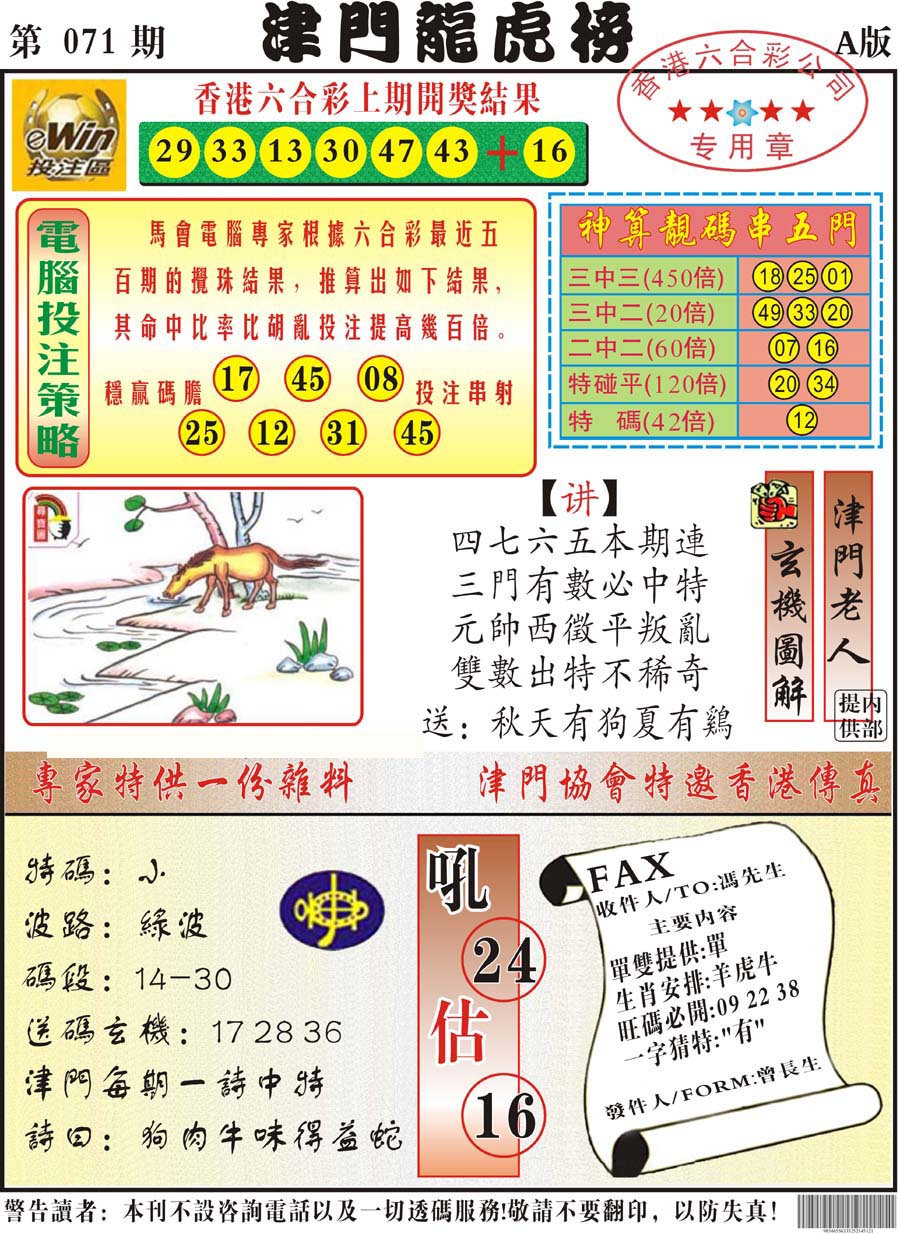 第 071 期
津門龍虎榜
A版
香港六合彩公司
专用章
eWin
投注區
香港六合彩上期開獎結果
29 33 13 30 47 43 + 16
電腦投注策略
馬會電腦專家根據六合彩最近五
百期的攪珠結果，推算出如下結果，
其命中比率比胡亂投注提高幾百倍。
穩贏碼膽 17 45 08 投注串射
25 12 31 45
神算靚碼串五門
三中三(450倍) 18 25 01
三中二(20倍) 49 33 20
二中二(60倍) 07 16
特碰平(120倍) 20 34
特 碼(42倍) 12
尋寶圖
【讲】
四七六五本期連
三門有數必中特
元帥西徵平叛亂
雙數出特不稀奇
送：秋天有狗夏有鷄
玄機圖解
津門老人
内部提供
專家特供一份雜料
津門協會特邀香港傳真
特碼：小
波路：綠波
碼段：14-30
送碼玄機：17 28 36
津門每期一詩中特
詩曰：狗肉牛味得益蛇
吼
24
估
16
FAX
收件人/TO:馮先生
主要内容
單雙提供:單
生肖安排:羊虎牛
旺碼必開:09 22 38
一字猜特:"有"
發件人/FORM:曾長生
警告讀者：本刊不設咨詢電話以及一切透碼服務!敬請不要翻印，以防失真!